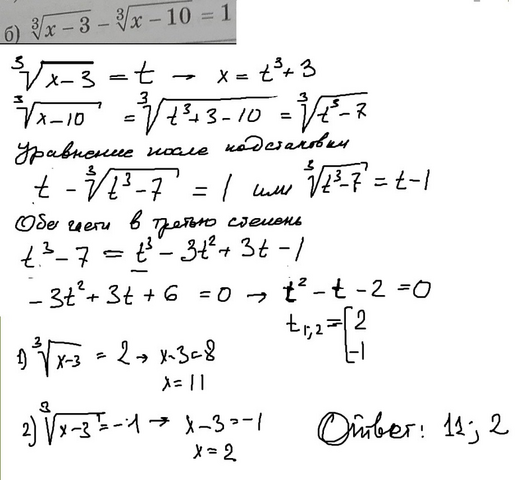 б) ∛(x − 3) − ∛(x − 10) = 1
∛(x−3) = t → x = t³+3
∛(x−10) = ∛(t³+3−10) = ∛(t³−7)
Уравнение после подстановки
t − ∛(t³−7) = 1 или ∛(t³−7) = t−1
Обе части в третью степень
t³−7 = t³ − 3t² + 3t − 1
−3t² + 3t + 6 = 0 → t² − t − 2 = 0
t₁,₂ = [2
−1
1) ∛(x−3) = 2 → x−3=8
x = 11
2) ∛(x−3) = −1 → x−3 = −1
x = 2
Ответ: 11; 2